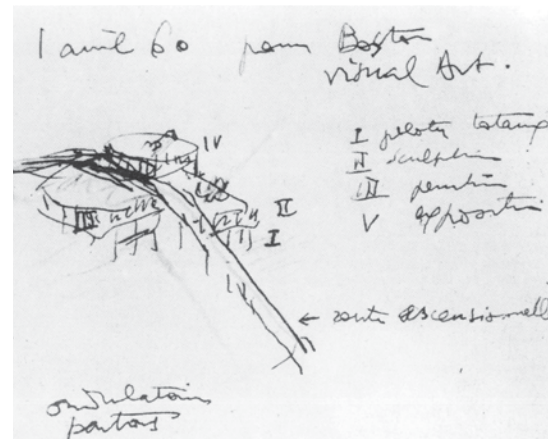 1 avril 60 pour Boston
visual Art.
IV
I pilotis totaux
II sculption
III peinture
V exposition
III
II
I
← route ascensionnelle
ondulatoires
partout